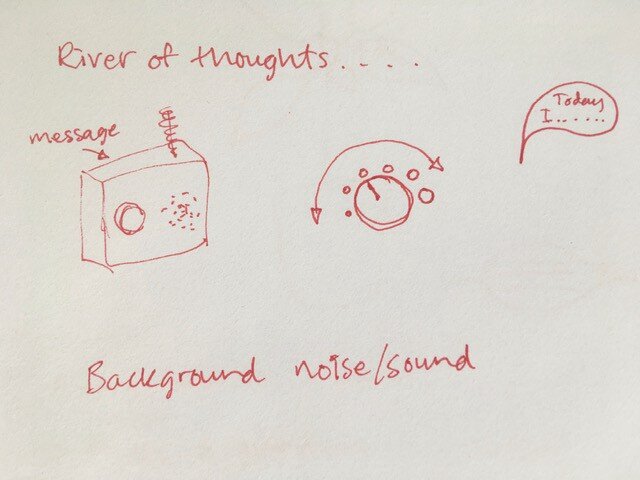 River of thoughts....
message
Today
I......
Background noise/sound